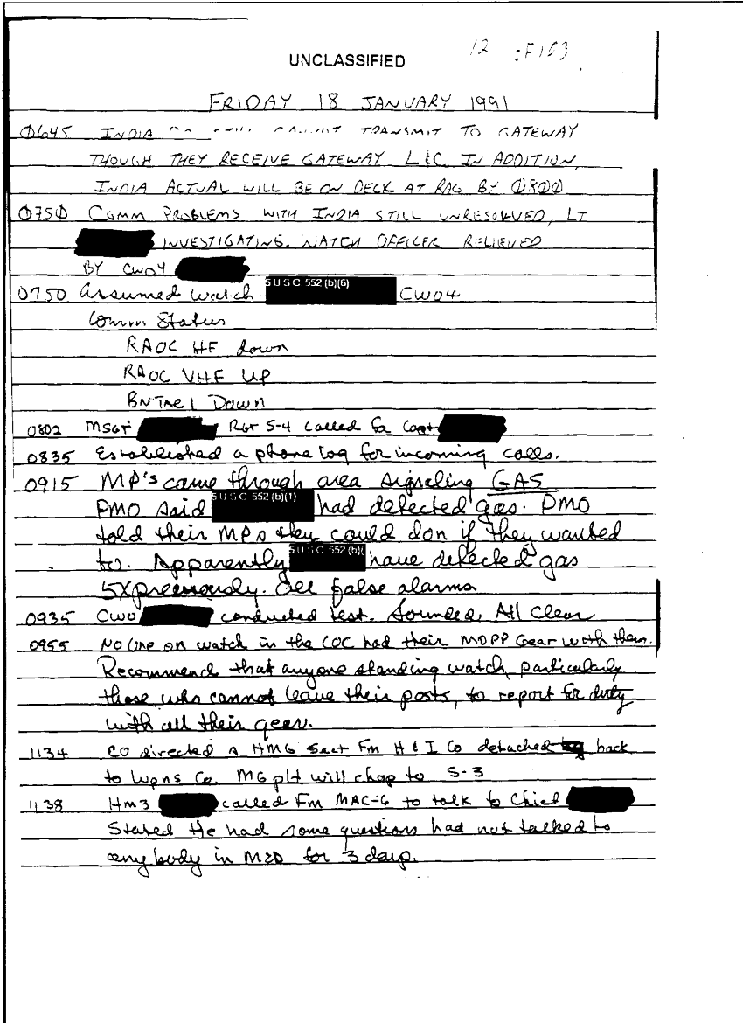 UNCLASSIFIED
FRIDAY 18 JANUARY 1991
0645 INDIA CANNOT TRANSMIT TO GATEWAY
THOUGH THEY RECEIVE GATEWAY LIC. IN ADDITION,
INDIA ACTUAL WILL BE ON DECK AT RAG BY 0800
0750 COMM PROBLEMS WITH INDIA STILL UNRESOLVED, LT
INVESTIGATING. WATCH OFFICER RELIEVED
BY CWO4
0750 Assumed watch 5 U S C 552 (b)(6) CWO4
Comm Status
RAOC HF down
RAOC VHF UP
BN TAC 1 Down
0802 MSgt Rgt S-4 called for Capt
0835 Established a phone log for incoming calls.
0915 MP's came through area signeling GAS
PMO said 5 U S C 552 (b)(1) had detected gas. PMO
told their MPs they could don if they wanted
to. Apparently 5 U S C 552 (b)( have detected gas
5X previously. All false alarms
0935 CWO conducted test. Sounded All Clear
0955 No one on watch in the COC had their MOPP Gear with them.
Recommend that anyone standing watch, particularly
those who cannot leave their posts, to report for duty
with all their gear.
1134 CO directed a HMG Sect Fm H & I Co detached back
to Wpns Co. MG plt will chop to S-3
1138 HM3 called Fm MAC-G to talk to Chief
Stated He had some questions had not talked to
any body in MED for 3 days.